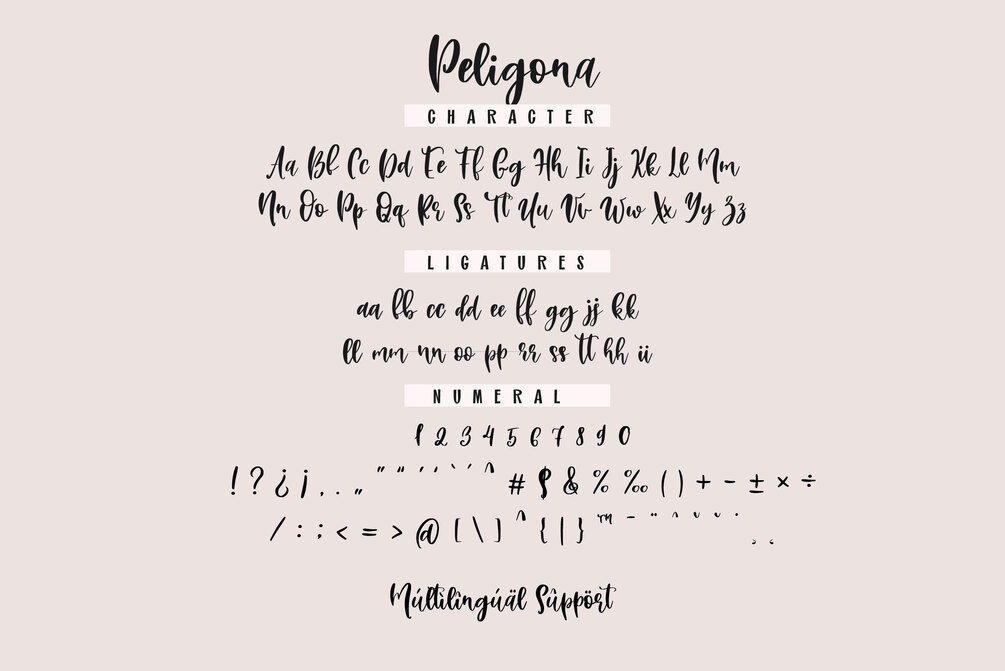 Peligona
CHARACTER
Aa Bb Cc Dd Ee Ff Gg Hh Ii Jj Kk Ll Mm
Nn Oo Pp Qq Rr Ss Tt Uu Vv Ww Xx Yy Zz
LIGATURES
aa bb cc dd ee ff gg jj kk
ll mm nn oo pp rr ss tt hh ii
NUMERAL
1 2 3 4 5 6 7 8 9 0
! ? ¿ ¡ , . „ " “ ‘ ’ ` ´ ^ # $ & % ‰ ( ) + - ± × ÷
/ : ; < = > @ [ \ ] ^ { | } ™ ¯ ¨
Múltìlîngúäl Sûppört